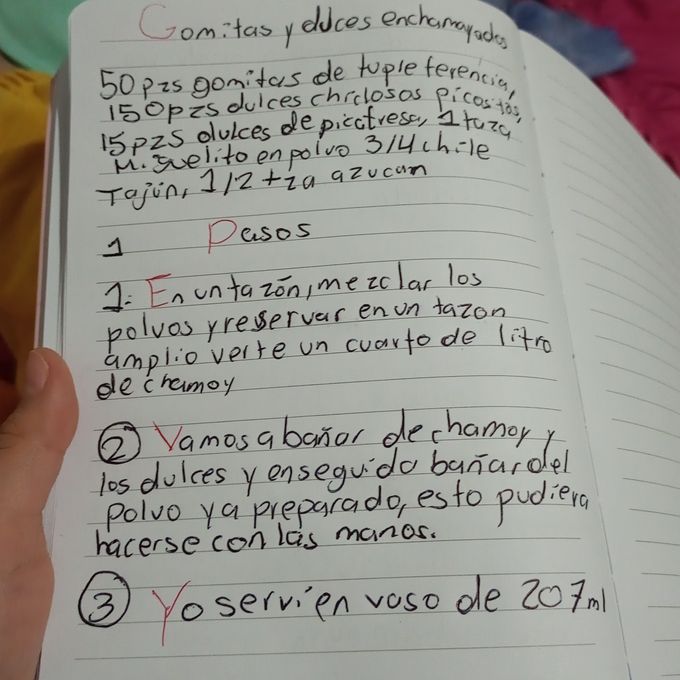 Gomitas y dulces enchamoyados
50 pzs gomitas de tu preferencia,
150 pzs dulces chiclosos picositos,
15 pzs dulces de picafresa, 1 taza
M. guelito en polvo 3/4 chile
Tajín, 1/2 tza azucar
1 Pasos
1: En un tazón, mezclar los
polvos y reservar en un tazon
amplio verte un cuarto de litro
de chamoy
2 Vamos a bañar de chamoy y
los dulces y enseguida bañar del
polvo ya preparado, esto pudiera
hacerse con las manos.
3 Yo servi en vaso de 207 ml